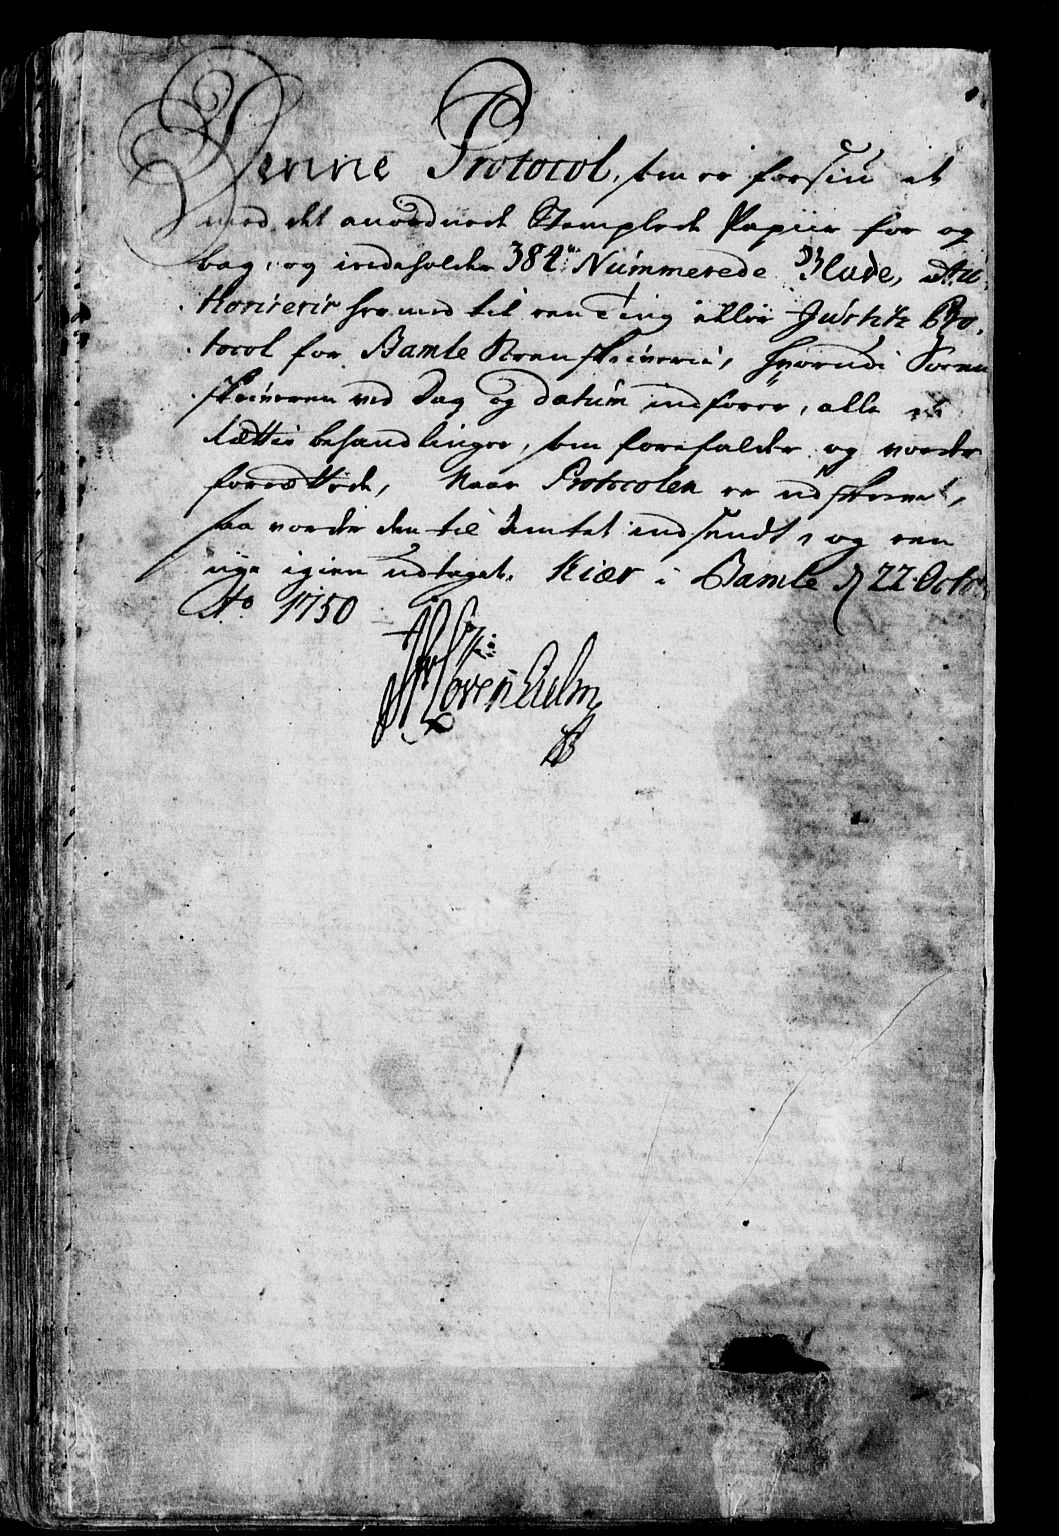 Denne Protocol, som er forsiu et
med det anordnede Stemplede Papiir for og
bag, og indeholder 384 Nummerede Blade, Au,
thoriserir hermed til een Ting eller Justitz Pro,
tocol for Bamle Sorenskriverie, hvorudi Soren
skriveren ved Dag og datum indfører, alle
Rættis behandlinger, som forefalder og vorder
forrættede, Naar Protocolen er udskreven,
saa vorder den til Amtet indsendt, og een
nye igien udtaget. Kiær i Bamle d 22 Octobr
Ao 1750
Løvenhielm